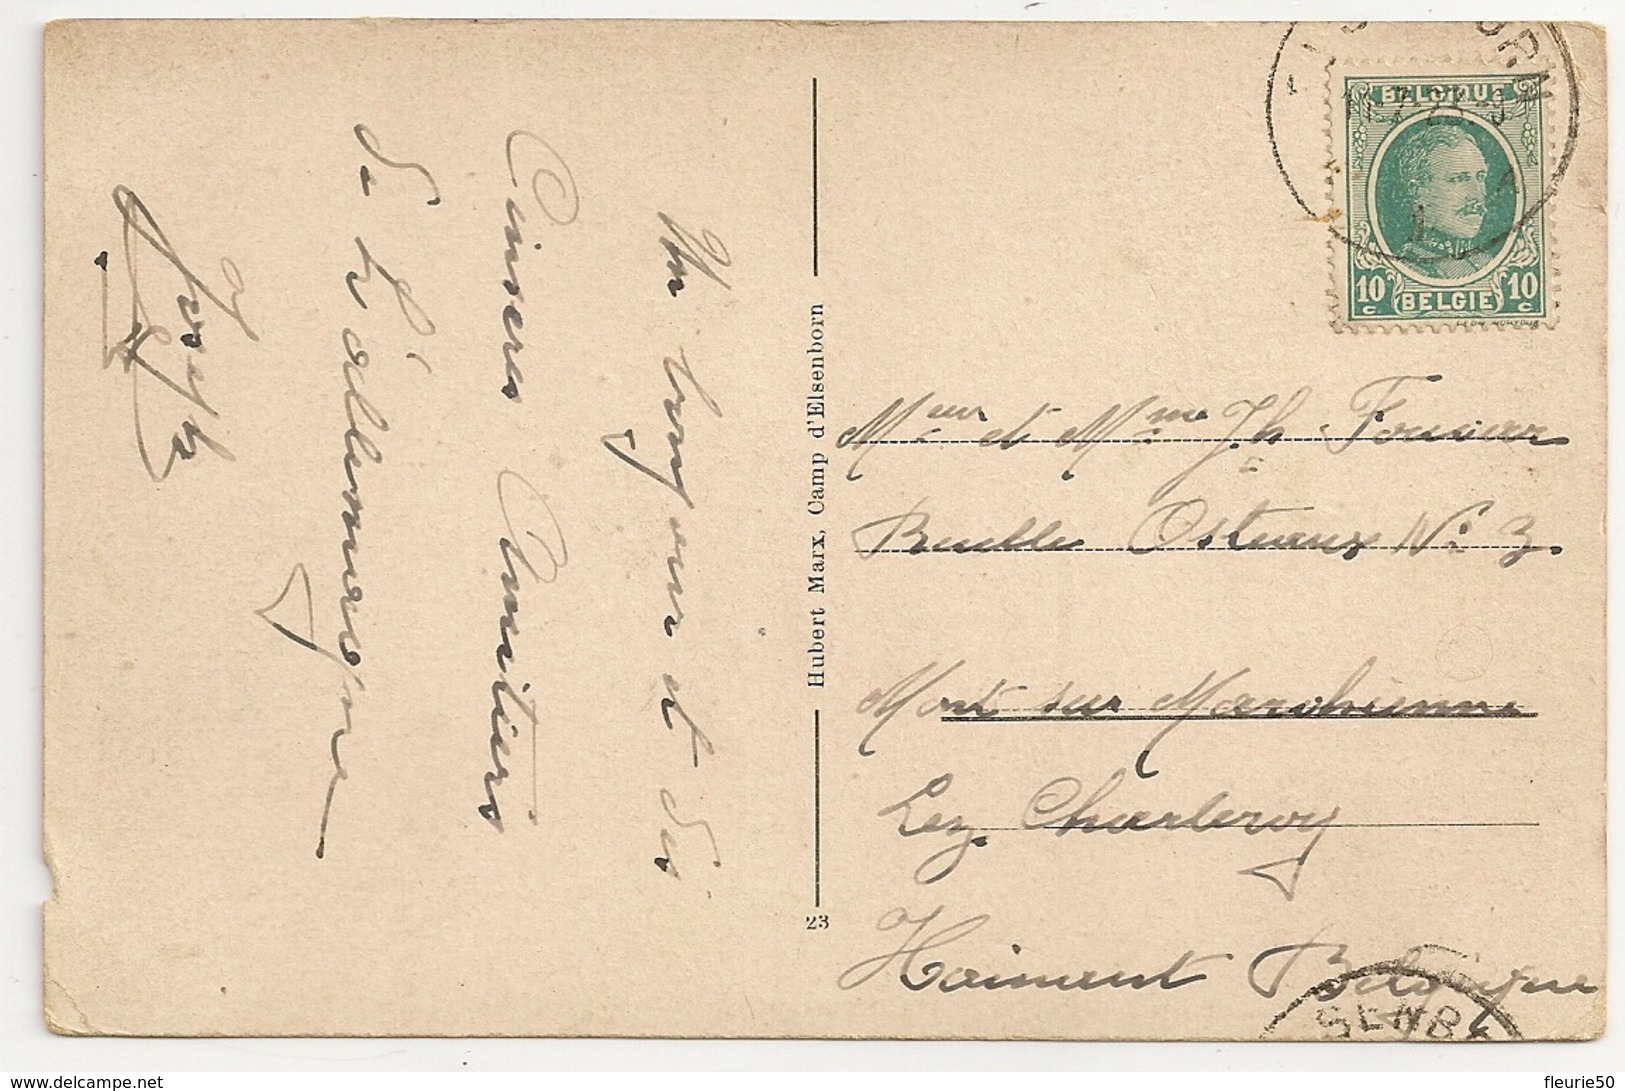 Un bonjour et des
Cinseres Amitiers
de l'allemagne
Joseph
Hubert Marx, Camp d'Elsenborn
23
BELGIQUE
10 c BELGIE 10 c
Meur et Mme Jh. Fouviar
Ruelle Osteaux No 3.
Mont sur Marchienne
Lez. Charleroy
Hainaut Belgique
SENB